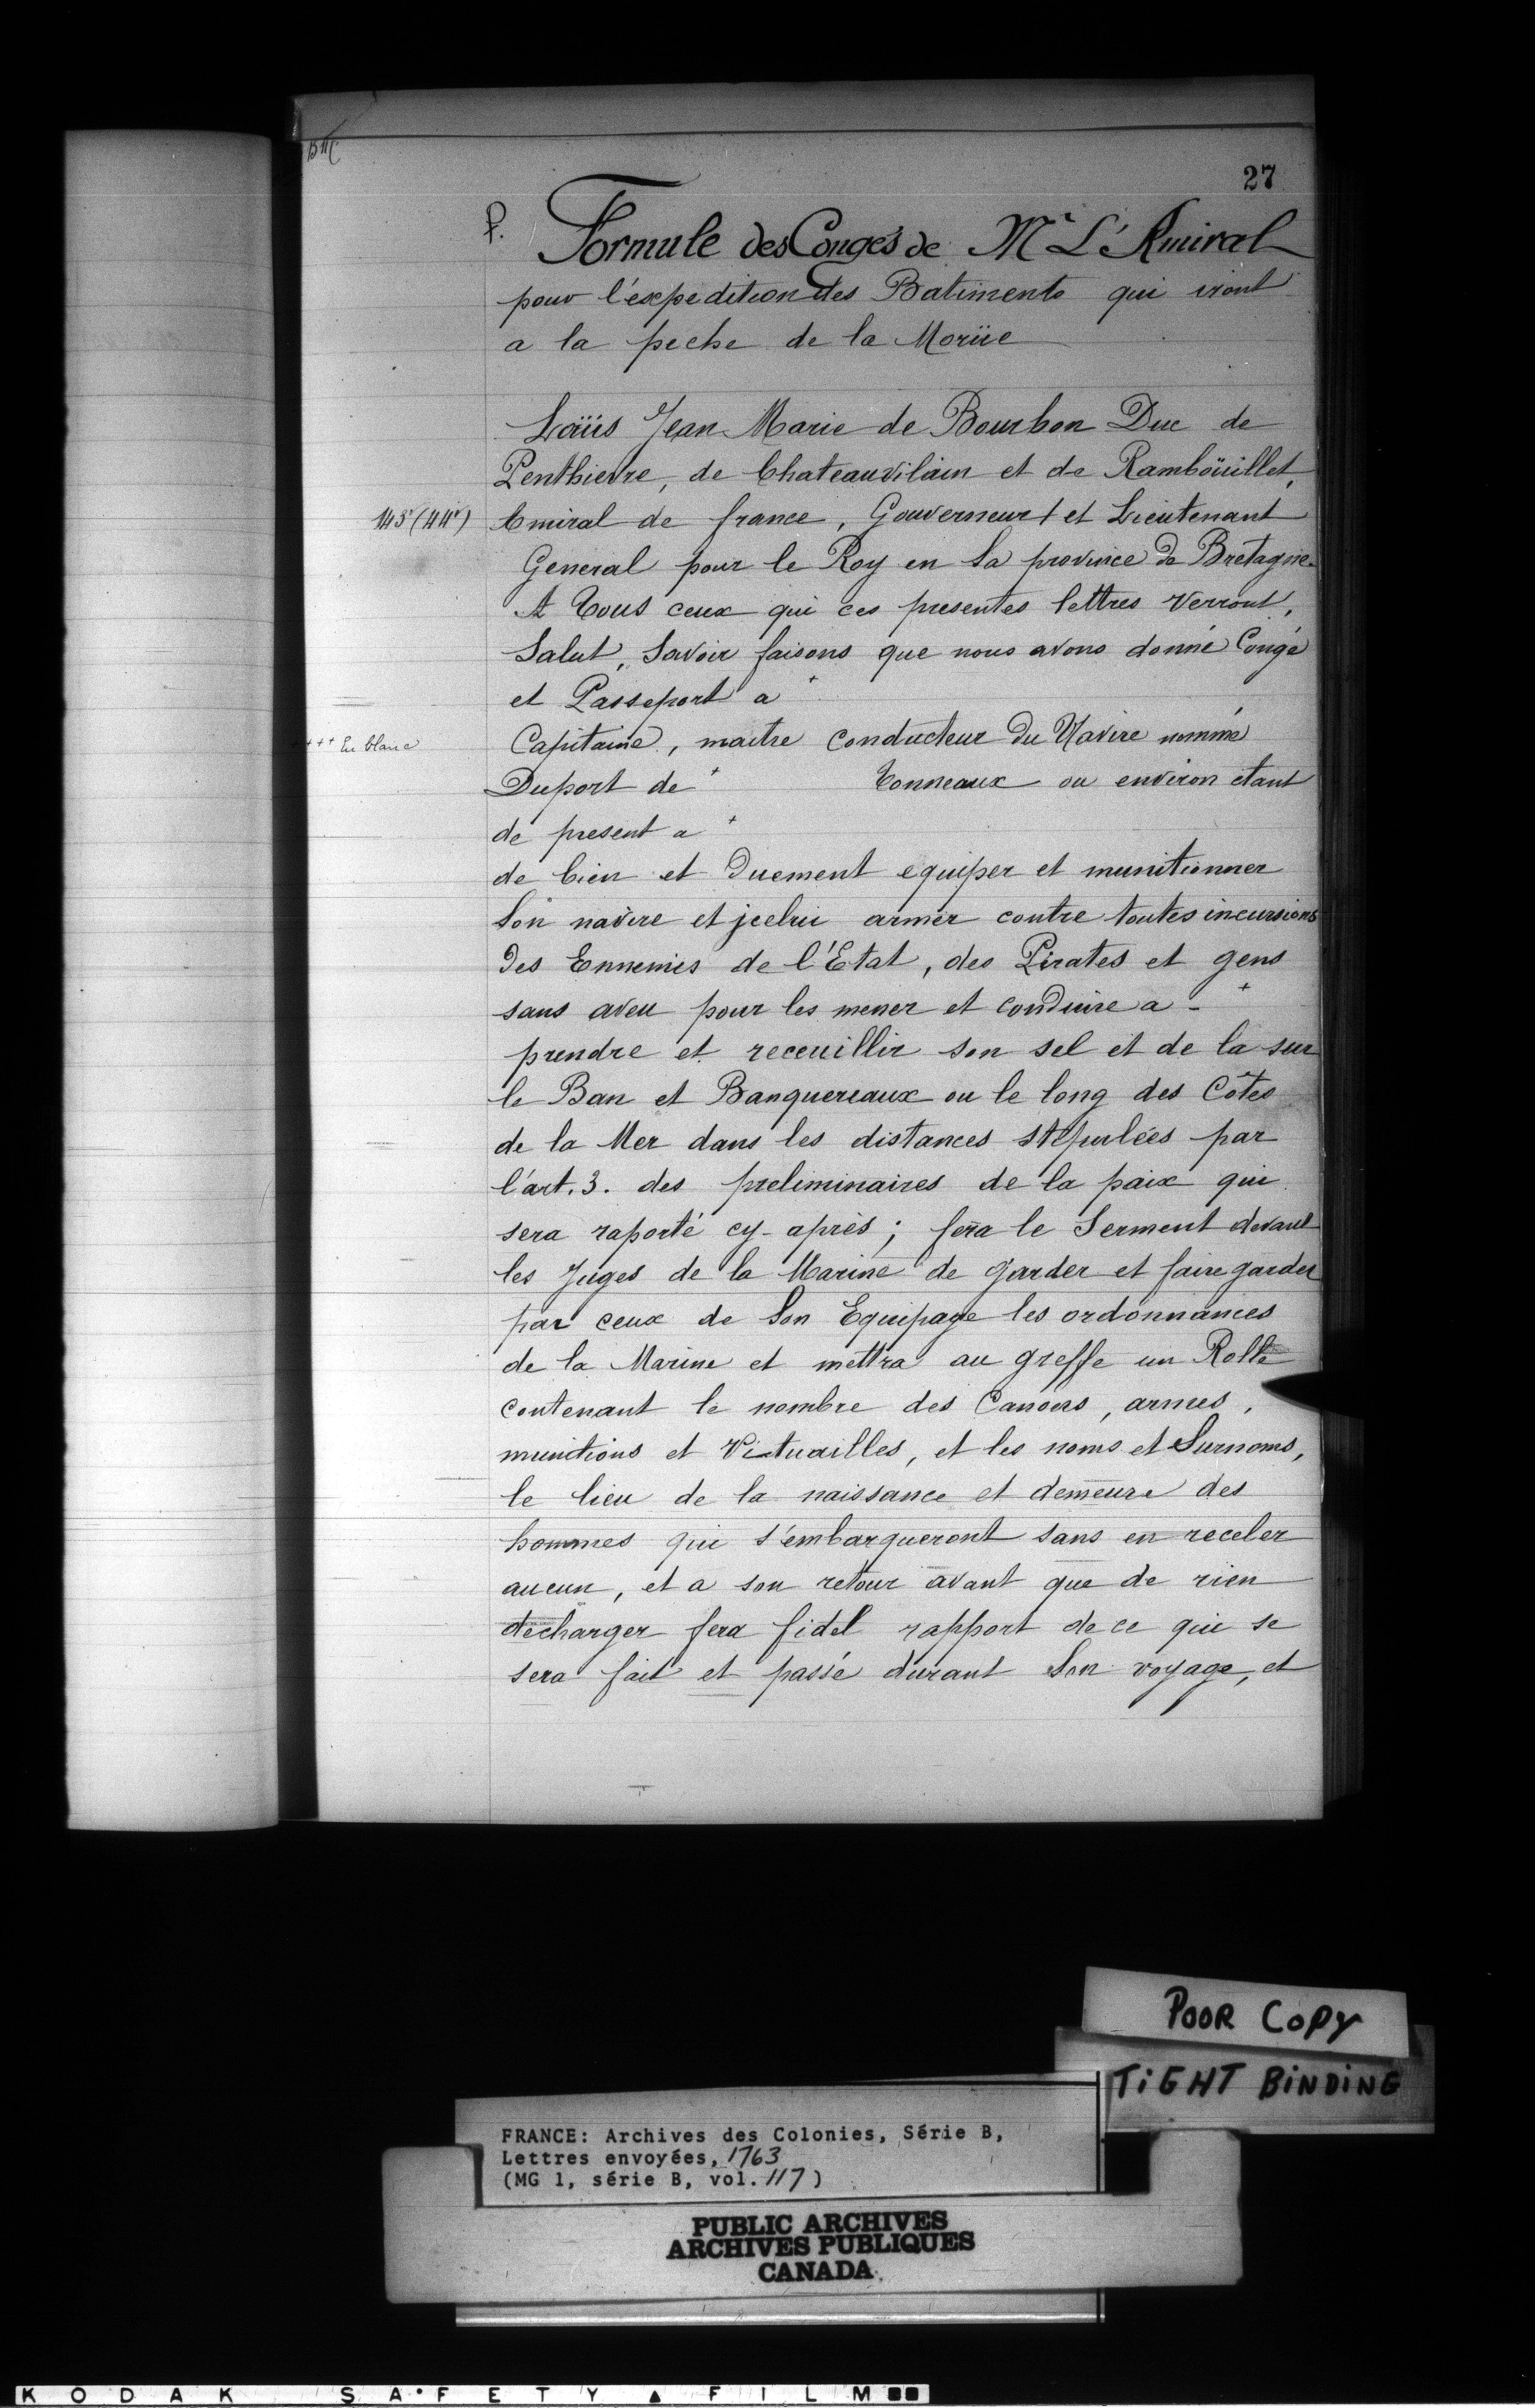 27
P. Formule des Congés de Mr L'Amiral
pour l'éxpedition des Batiments qui iront
a la peche de la Morüe
Loüis Jean Marie de Bourbon Duc de
Penthievre, de Chateauvilain et de Ramboüillet,
Amiral de france, Gouverneur / et Lieutenant
General pour le Roy en Sa province de Bretagne.
A Tous ceux qui ces presentes lettres Verront,
Salut, Savoir faisons que nous avons donné Congé
et Passeport a +
+++ En blanc
Capitaine, maitre Conducteur Du Navire nommé
Duport de + Tonneaux ou environ etant
de present a +
de bien et Duement equiper et munitionner
Son navire et jcelui armer contre toutes incursions
Des Ennemis de l'Etat, des Pirates et gens
sans aveu pour les mener et conduire a - +
prendre et receuillir son sel et de la sur
le Ban et Banquereaux ou le long des Côtes
de la Mer dans les distances stipulées par
l'art. 3. des preliminaires de la paix qui
sera raporté cy-après ; fera le Serment devant
les Juges de la Marine de garder et faire garder
par ceux de Son Equipage les ordonnances
de la Marine et mettra au greffe un Rolle
contenant le nombre des Canons, armes,
munitions et Victuailles, et les noms et Surnoms,
le lieu de la naissance et demeure des
hommes qui s'embarqueront sans en receler
aucun, et a son retour avant que de rien
décharger fera fidel rapport de ce qui se
sera fait et passé durant Son voyage, et
POOR COPY
TIGHT BINDING
FRANCE: Archives des Colonies, Série B,
Lettres envoyées, 1763
(MG 1, série B, vol. 117)
PUBLIC ARCHIVES
ARCHIVES PUBLIQUES
CANADA
KODAK SAFETY FILM